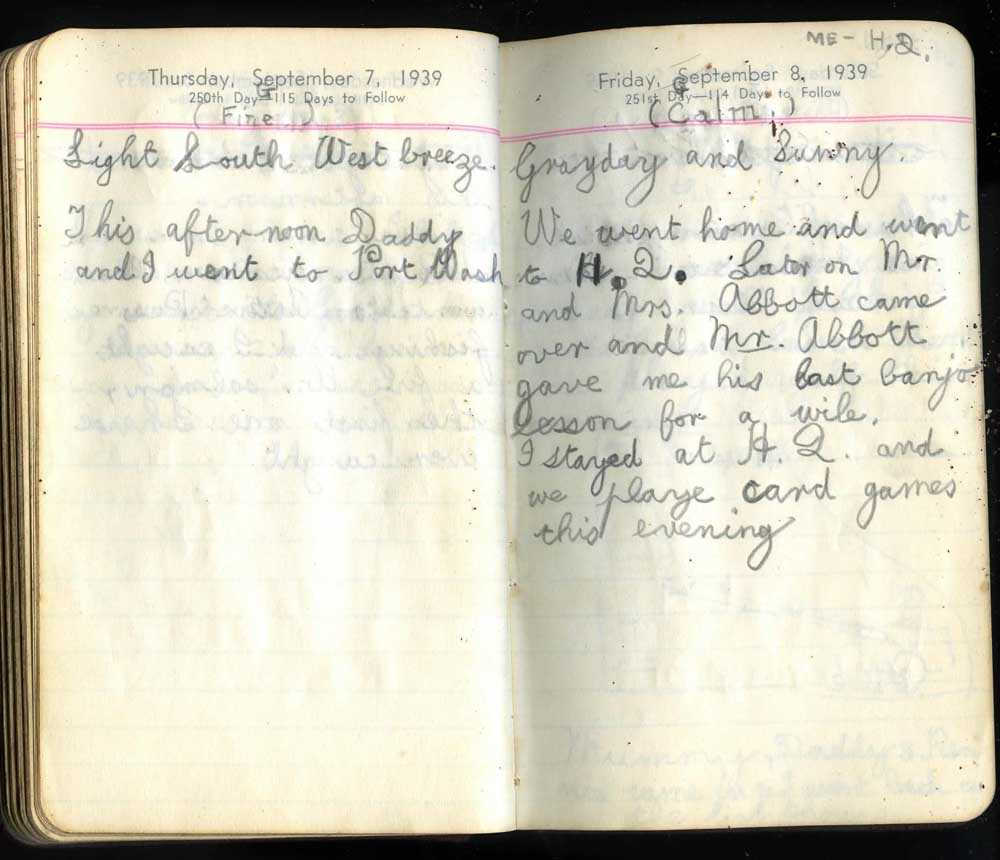 Thursday, September 7, 1939
250th Day—115 Days to Follow
(Fine.)
Light South West breeze.
This after-noon Daddy
and I went to Port Wash
ME- H.Q.
Friday, September 8, 1939
251st Day—114 Days to Follow
(Calm.)
Grayday and Sunny.
We went home and went
to H.Q. Later on Mr.
and Mrs. Abbott came
over and Mr. Abbott
gave me his last banjo
lesson for a wile.
I stayed at H.Q. and
we playe card games
this evening